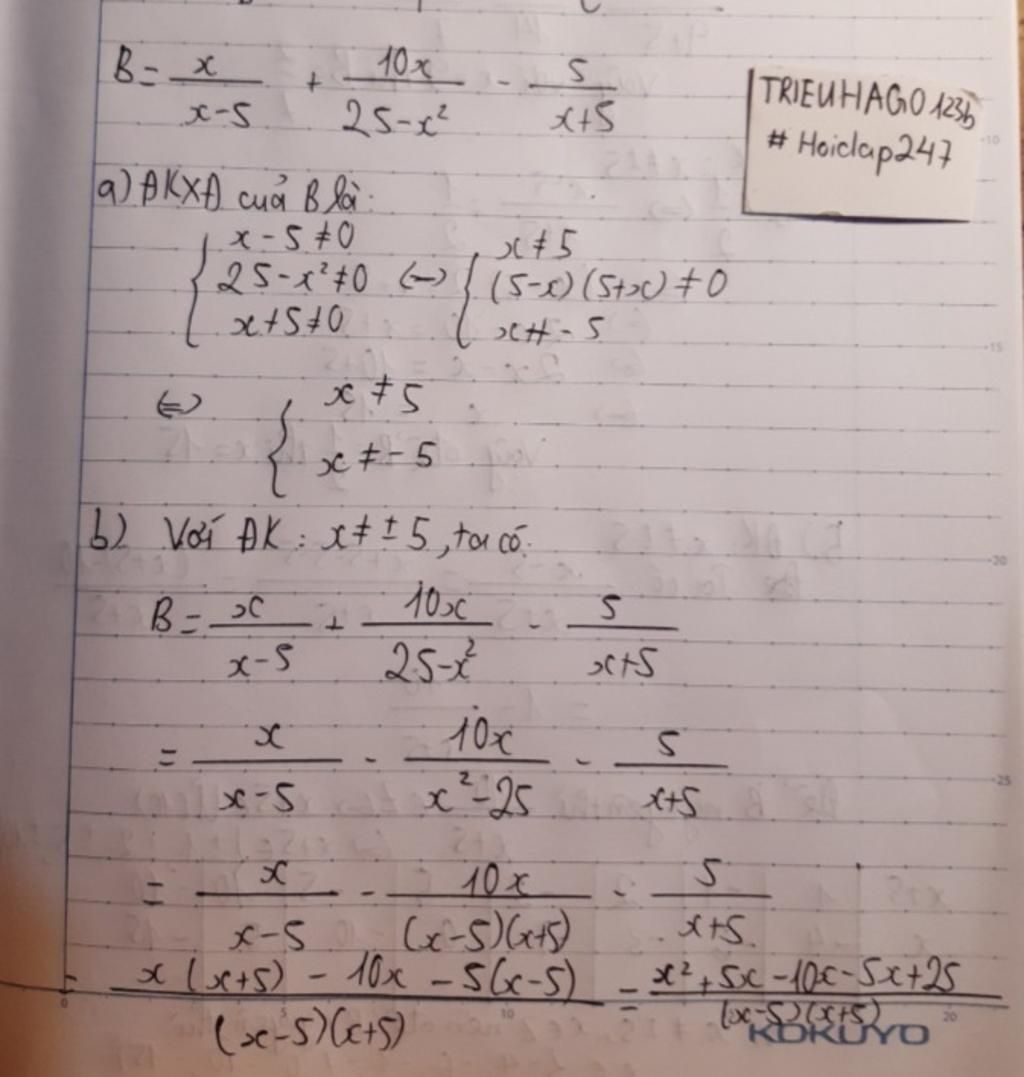 B = x/(x-5) + 10x/(25-x²) - 5/(x+5)
TRIEUHAGO123b
# Hoidap247
a) ĐKXĐ cuả B là:
{ x - 5 ≠ 0 { x ≠ 5
25 - x² ≠ 0 <=> (5-x)(5+x) ≠ 0
x + 5 ≠ 0 x ≠ - 5
<=> { x ≠ 5
x ≠ - 5
b) Với ĐK : x ≠ ± 5, ta có:
B = x/(x-5) + 10x/(25-x²) - 5/(x+5)
= x/(x-5) - 10x/(x²-25) - 5/(x+5)
= x/(x-5) - 10x/((x-5)(x+5)) - 5/(x+5)
= (x(x+5) - 10x - 5(x-5))/((x-5)(x+5)) = (x² + 5x - 10x - 5x + 25)/((x-5)(x+5))
KOKUYO